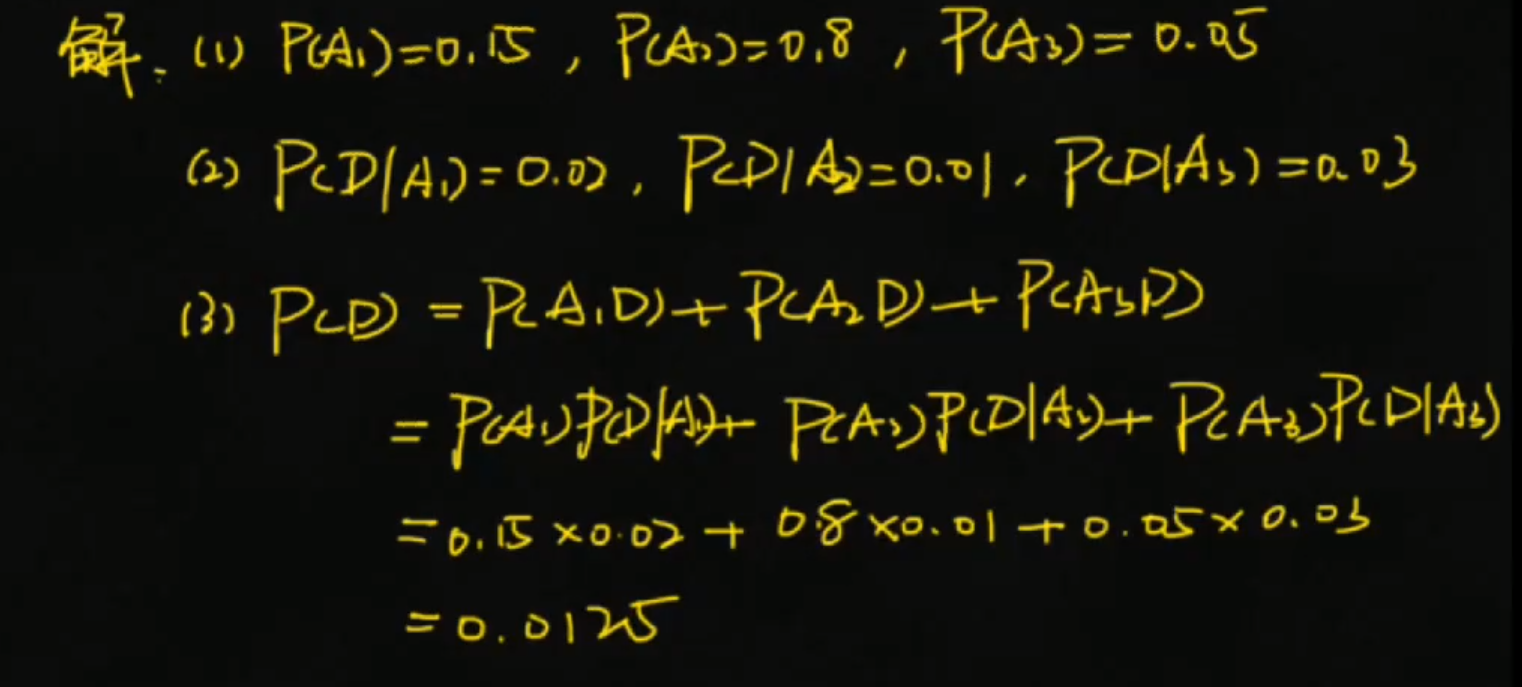 解. (1) P(A₁)=0.15 , P(A₂)=0.8 , P(A₃)=0.05
(2) P(D|A₁)=0.02 , P(D|A₂)=0.01 , P(D|A₃)=0.03
(3) P(D) = P(A₁D)+P(A₂D)+P(A₃D)
= P(A₁)P(D|A₁)+ P(A₂)P(D|A₂)+ P(A₃)P(D|A₃)
=0.15×0.02+0.8×0.01+0.05×0.03
=0.0125